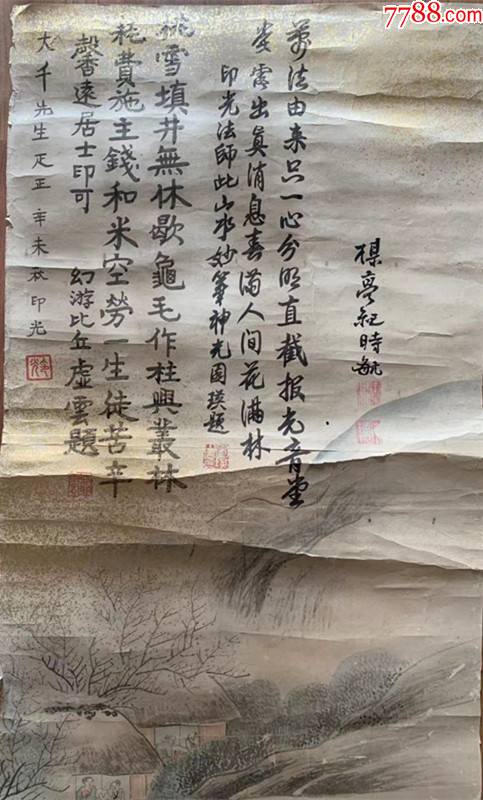 7788.com
楳亭紀時敏
萬法由来只一心分明直截报光音堂
堂露出真消息春滿人间花滿林
印光法師此山水妙筆神光圓瑛題
挑雪填井無休歇龜毛作柱興叢林
耗費施主錢和米空勞一生徒苦辛
馨香遠居士印可
幻游比丘虛雲題
大千先生疋正 辛未秋 印光